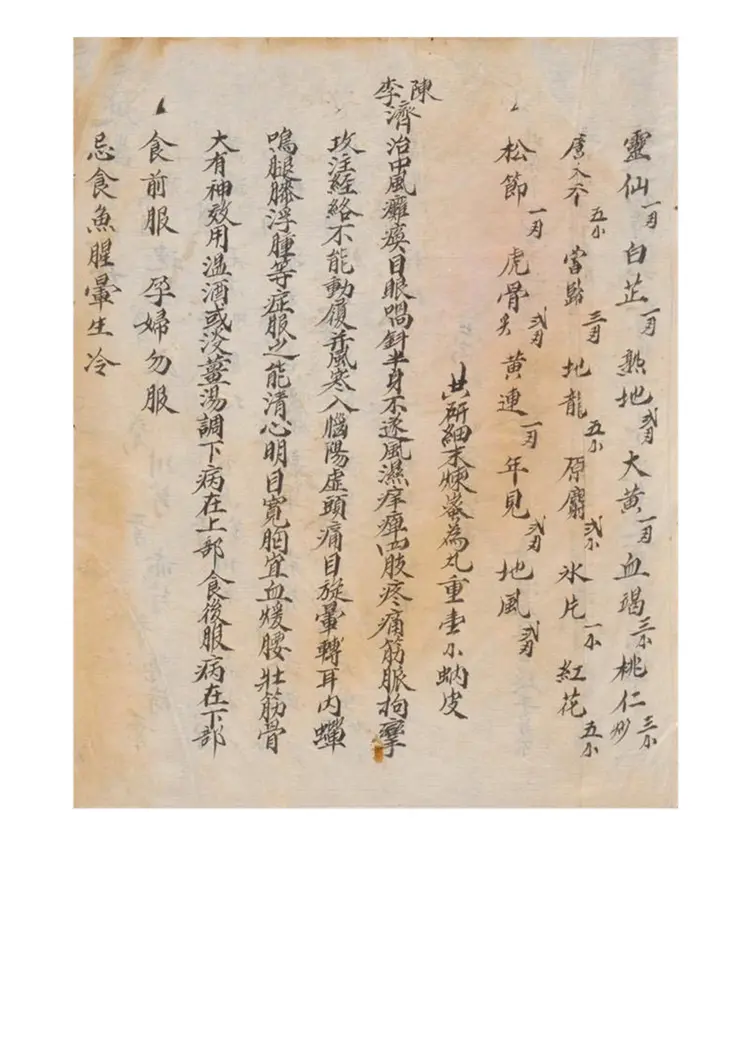 靈仙一刃 白芷一刃 熟地弍刃 大黄一刃 血竭三小 桃仁炒三小
五小 當歸三刃 地龍五小 原麝弍小 氷片一小 紅花五小
松節一刃 虎骨炙弍刃 黄連一刃 年見弍刃 地風弍刃
共研細末煉蜜為丸重壹小蚋皮
陳李濟治中風癱瘓目眼喎斜半身不遂風濕痒瘂四肢疼痛筋脈拘攣
攻注経絡不能動履并風寒入腦陽虛頭痛目旋暈轉耳内蟬
鳴腿膝浮腫等症服之能清心明目寬胸宜血煖腰壯筋骨
大有神效用温酒或淡薑湯調下病在上部食後服病在下部
食前服 孕婦勿服
忌食魚腥暈生冷